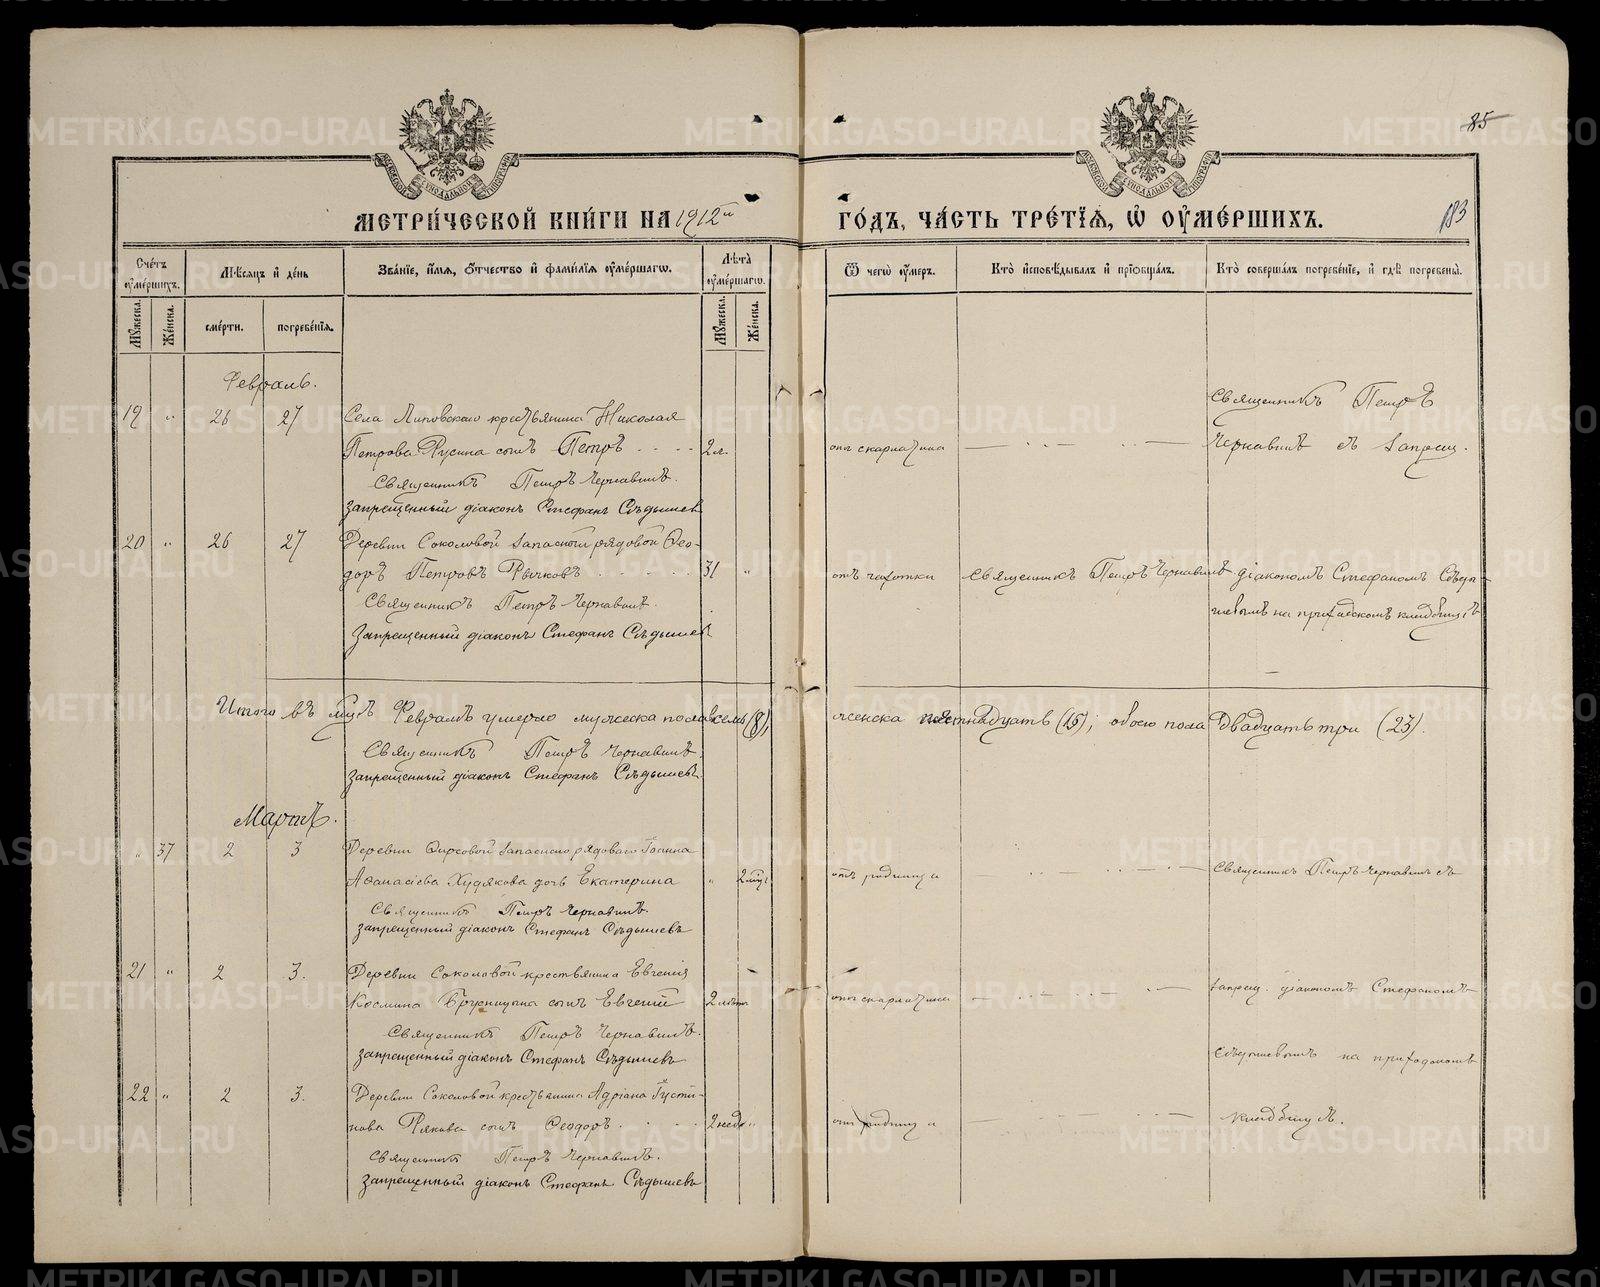 85
183
МЕТРИ́ЧЕСКОЙ КНИ́ГИ НА 1912й ГО́ДЪ, ЧА́СТЬ ТРЕ́ТІѦ, Ѡ ОУ҆МЕ́РШИХЪ.
Счетъ оумершихъ.
Мѣсяцъ и день
Званіе, имя, отчество и фамилія оумершагѡ.
Лѣта оумершагѡ.
Ѿ чегѡ оумеръ.
Кто исповѣдывалъ и пріобщалъ.
Кто совершалъ погребеніе, и гдѣ погребены.
Мужеска.
Женска.
смерти.
погребенія.
Мужеска.
Женска.
Февраль.
19 " 26 27 Села Липовскаго крестьянина Николая
Петрова Русина сынъ Петръ 2 л. отъ скарлатина
Священникъ Петръ
Чернавинъ съ запрещ.
Священникъ Петръ Чернавинъ.
Запрещенный діаконъ Стефанъ Сѣдышев
20 " 26 27 Деревни Соколовой запасный рядовой Ѳео-
доръ Петровъ Рычков 31 " отъ чахотки Священникъ Петръ Чернавинъ діакономъ Стефаномъ Сѣды-
шевымъ на приходскомъ кладбищѣ
Священникъ Петръ Чернавинъ.
Запрещенный діаконъ Стефанъ Сѣдышев
Итого въ мцѣ Февралѣ умерло мужеска пола восемь (8), женска пятнадцать (15); обоего пола двадцать три (23).
Священникъ Петръ Чернавинъ
Запрещенный діаконъ Стефанъ Сѣдышевъ
Мартъ.
" 37 2 3 Деревни Фирсовой запаснаго рядоваго Іоанна
Аѳанасіева Худякова дочь Екатерина " 2 мѣц. отъ родимца Священникъ Петръ Чернавинъ съ
Священникъ Петръ Чернавинъ.
Запрещенный діаконъ Стефанъ Сѣдышевъ
21 " 2 3. Деревни Соколовой крестьянина Евгенія
Космина Брусницына сынъ Евгеній 2 лѣтъ отъ скарлатина запрещ. діакономъ Стефаномъ
Священникъ Петръ Чернавинъ.
Запрещенный діаконъ Стефанъ Сѣдышевъ
Сѣдышевымъ на приходскомъ
22 " 2 3. Деревни Соколовой крестьянина Адріана Іусти-
нова сынъ Ѳеодоръ 2 нед. " отъ родимца кладбищѣ.
Священникъ Петръ Чернавинъ.
Запрещенный діаконъ Стефанъ Сѣдышевъ
METRIKI.GASO-URAL.RU